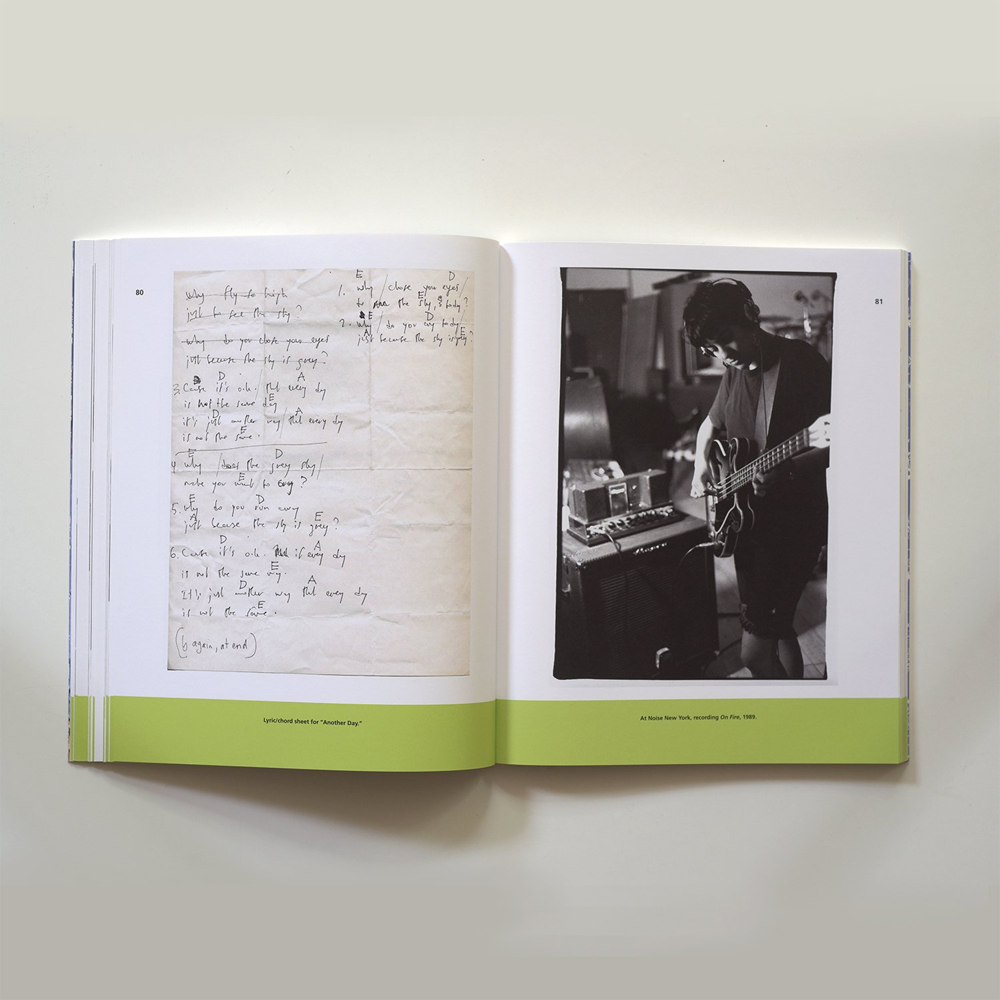 80
Why fly so high
just to see the sky?
Why do you close your eyes
just because the sky is grey?
D A
3. Cause it's o.k. that every day
is not the same day
E
D A
it's just another way that every day
is not the same.
E
E D
4 Why / does the grey sky /
make you want to cry?
E
E D
5. Why do you run away
A E
just because the sky is grey?
D A
6. Cause it's o.k. if every day
is not the same way.
E
D A
It's just another way that every day
is not the same.
E
(6 again, at end)
E D
1. Why / close your eyes /
to the sky, today?
E
E D
2. Why / do you cry today /
A E
just because the sky is grey?
Lyric/chord sheet for "Another Day."
81
At Noise New York, recording On Fire, 1989.